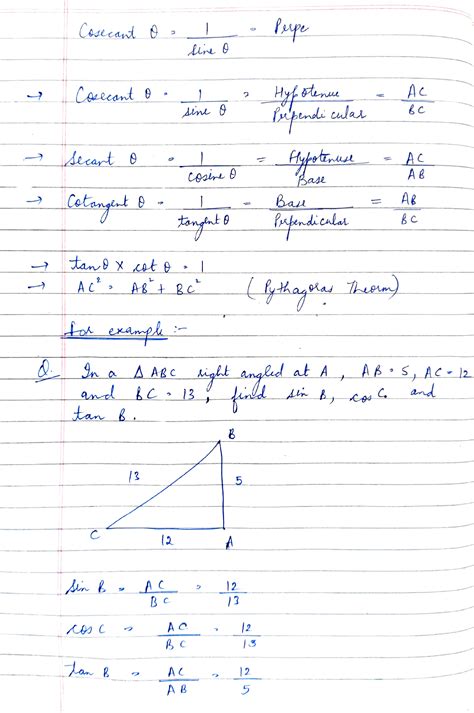 Cosecant θ = 1/sine θ = Perpe
→ Cosecant θ = 1/sine θ = Hypotenue/Perpendicular = AC/BC
→ Secant θ = 1/cosine θ = Hypotenuse/Base = AC/AB
→ Cotangent θ = 1/tangent θ = Base/Perpendicular = AB/BC
→ tan θ × cot θ = 1
→ AC² = AB² + BC² (Pythagoras Theorm)
For example :-
Q. In a Δ ABC right angled at A, AB = 5, AC = 12
and BC = 13, find sin B, cos C and
tan B.
B
13
5
C
12
A
Sin B = AC/BC = 12/13
cos C = AC/BC = 12/13
tan B = AC/AB = 12/5